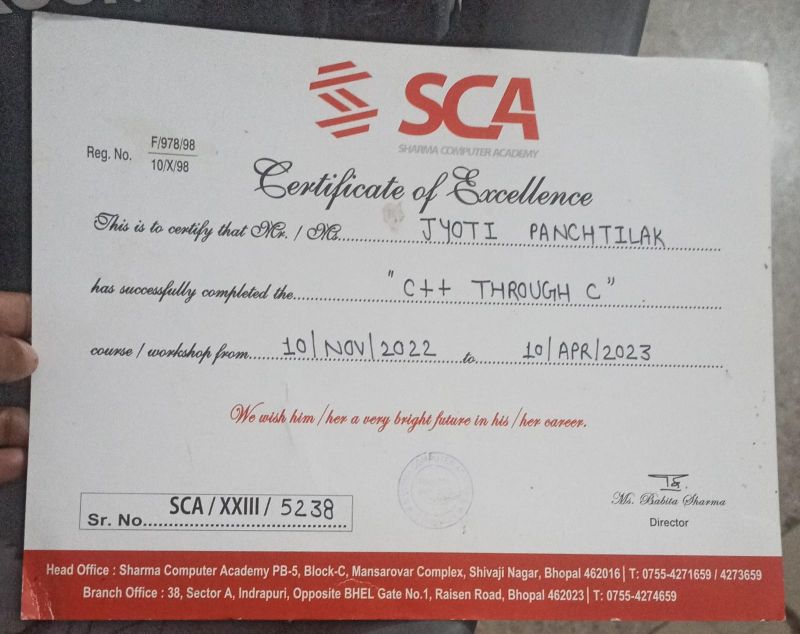 SCA
SHARMA COMPUTER ACADEMY
Reg. No. F/978/98
10/X/98
Certificate of Excellence
This is to certify that Mr. / Ms. JYOTI PANCHTILAK
has successfully completed the "C++ THROUGH C"
course / workshop from 10/NOV/2022 to 10/APR/2023
We wish him/her a very bright future in his/her career.
Sr. No. SCA/XXIII/ 5238
Ms. Babita Sharma
Director
Head Office : Sharma Computer Academy PB-5, Block-C, Mansarovar Complex, Shivaji Nagar, Bhopal 462016| T: 0755-4271659 / 4273659
Branch Office : 38, Sector A, Indrapuri, Opposite BHEL Gate No.1, Raisen Road, Bhopal 462023| T : 0755-4274659